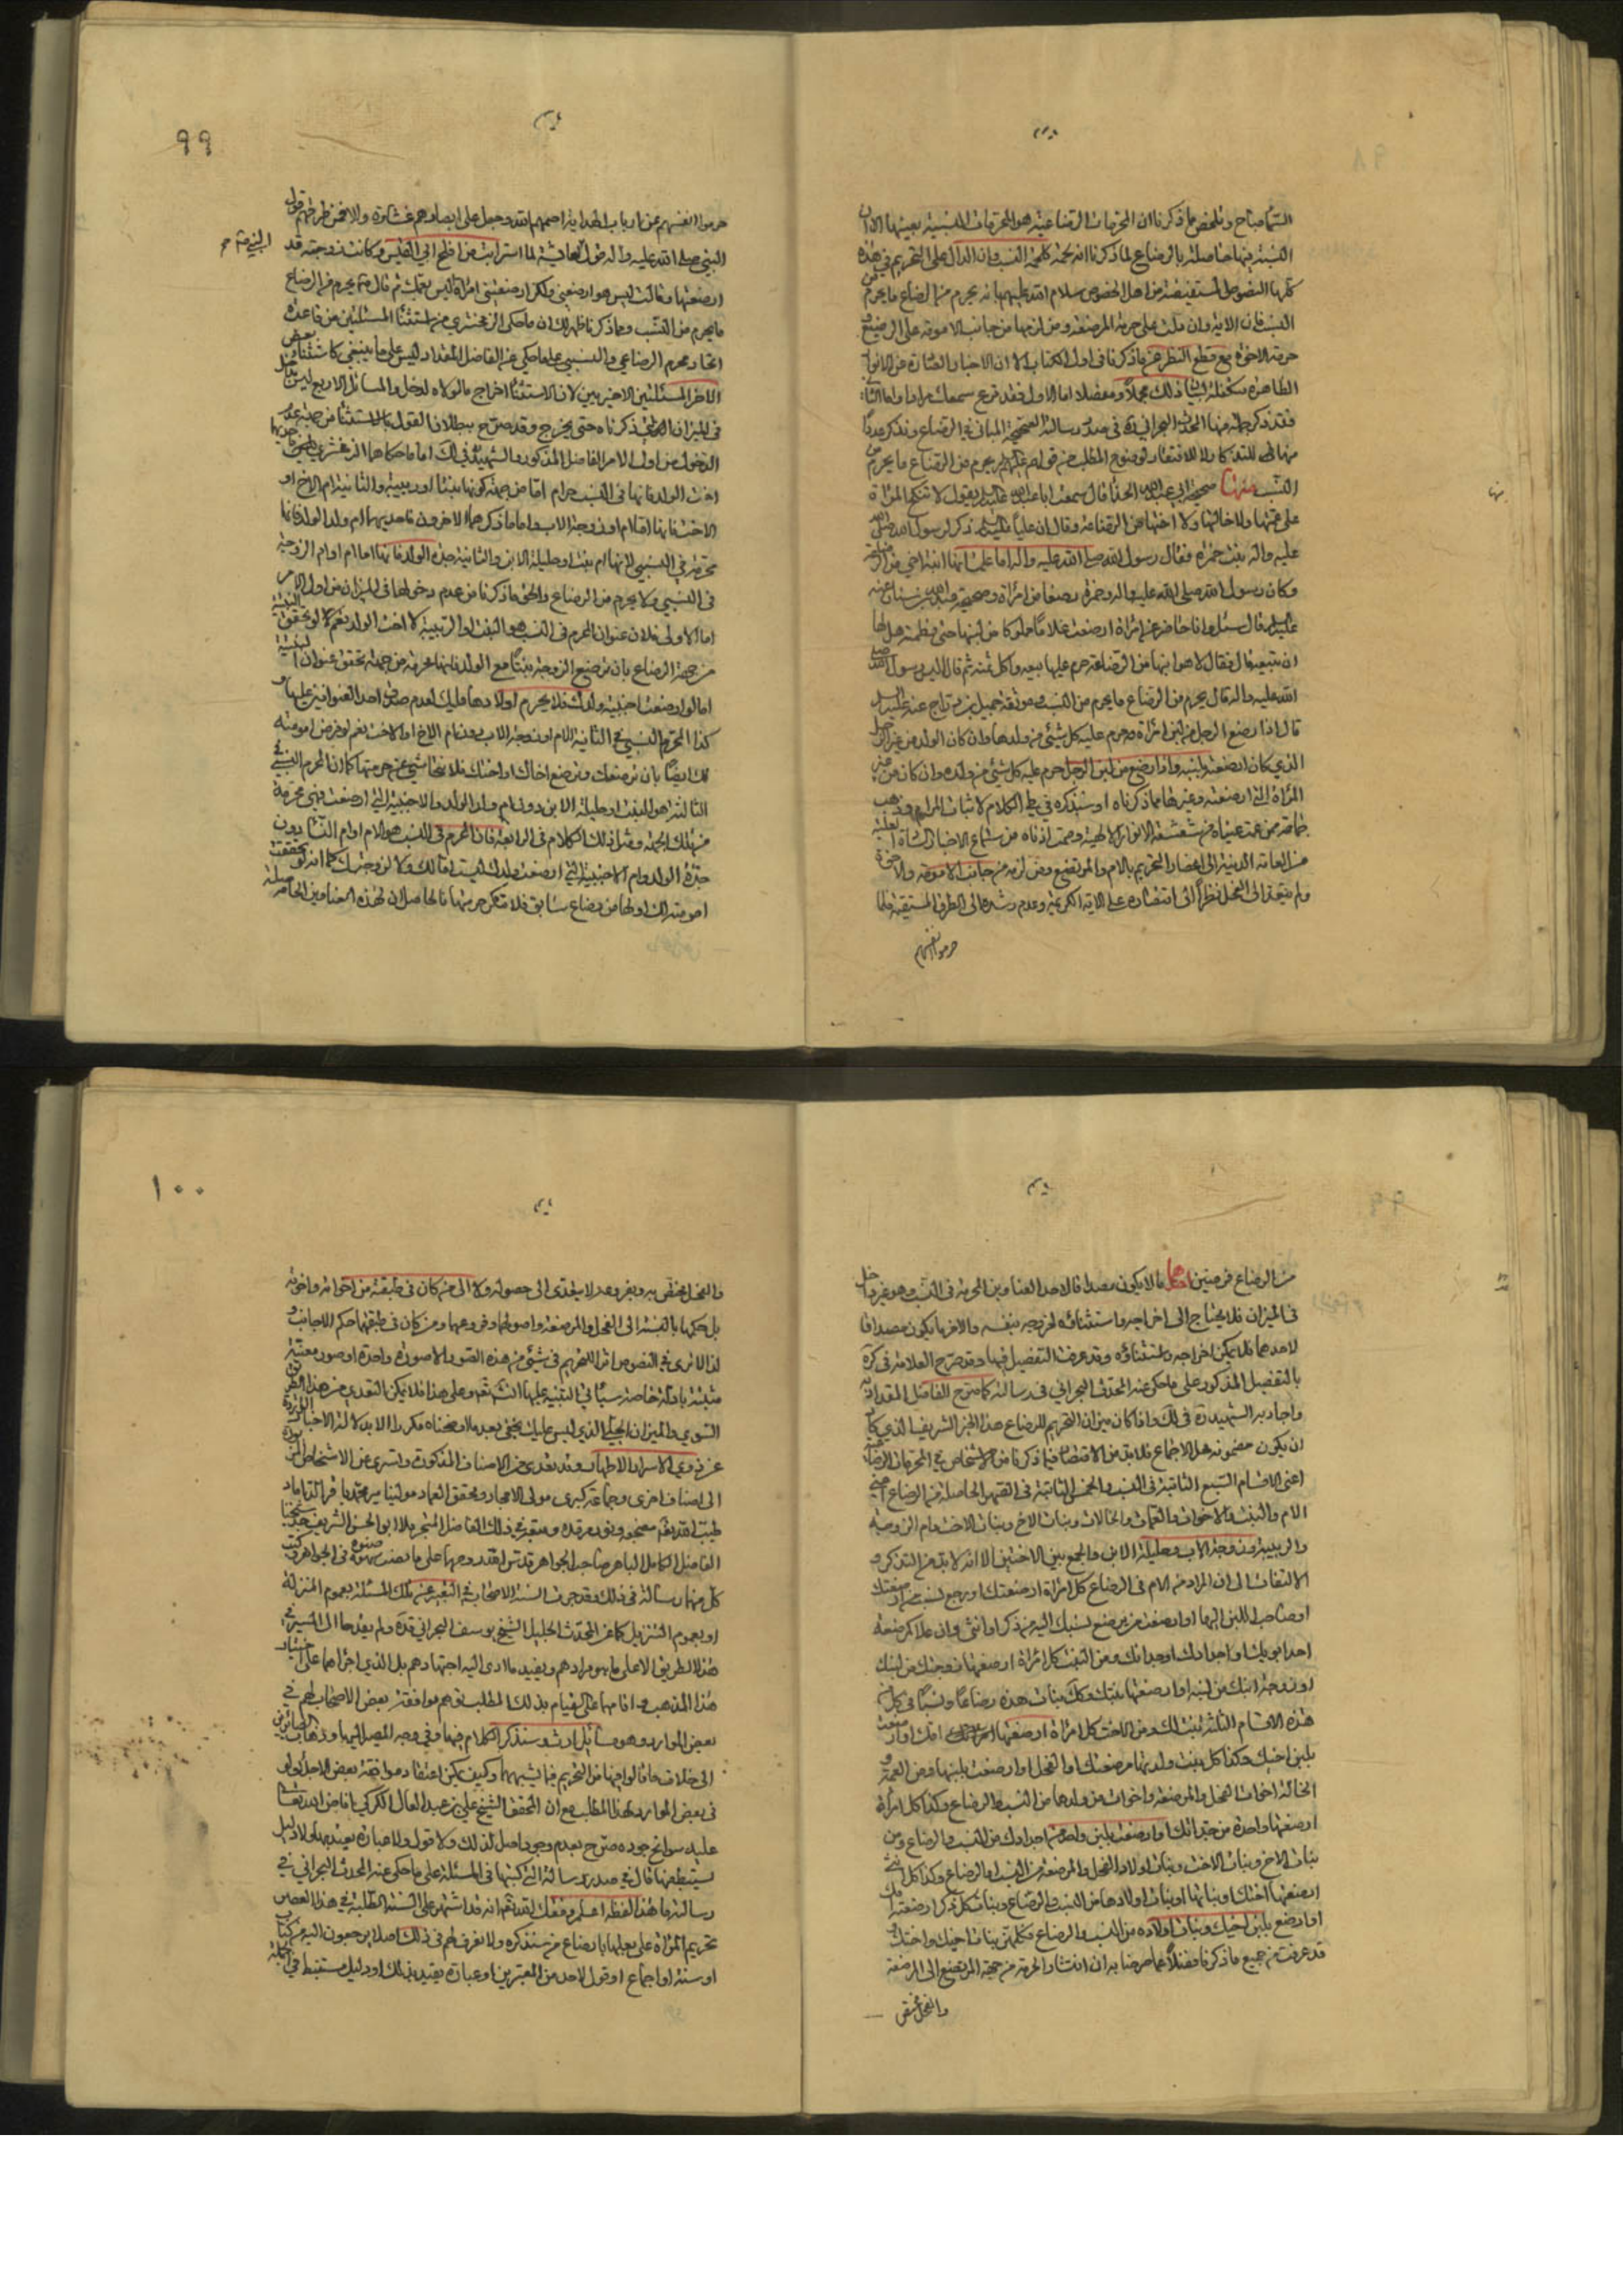 السما صباح و تلخص مما ذكرنا ان المحرمات الرضاعية هو المحرمات النسبية بعينها الا ان
النسبة بينهما حاصلة بالرضاع لما ذكرنا انه لحمة كلحمة النسب وان الدال على التحريم في هذه
كلها النصوص المستفيضة من اهل الخصوص سلام الله عليهم بانه يحرم من الرضاع ما يحرم من
النسب فان الاية وان دلت على حرمة المرضعة ومن لزمها من جانب الامومة على الرضيع و
حرمة الاخوة مع قطع النظر عن ما ذكرنا في اول الكتاب الا ان الاخبار الصادرة عن الانوار
الطاهرة متكفلة لبيان ذلك مجملا ومفصلا اما الاول فقد قرع سمعك مرارا واما الثاني
فقد ذكر جملة منها المحدث البحراني ره في صدر رسالته
النسب منها صحيحة ابي عبيدة الحذا قال سمعت ابا عبد الله عليه السلام يقول لا تنكح المراة
على عمتها ولا خالتها ولا اختها من الرضاعة وقال ان عليا عليه السلام ذكر لرسول الله صلى الله
عليه واله بنت حمزة فقال رسول الله صلى الله عليه واله اما علمت انها ابنة اخي من الرضاعة
وكان رسول الله صلى الله عليه واله وحمزة رضعا من امراة وصحيحة عبد الله بن سنان عنه
عليه السلام قال سئل وانا حاضر عن امراة ارضعت غلاما مملوكا من لبنها حتى فطمته هل لها
ان تبيعه قال فقال لا هو ابنها من الرضاعة حرم عليها بيعه واكل ثمنه ثم قال اليس رسول الله صلى
الله عليه واله قال يحرم من الرضاع ما يحرم من النسب وموثقة جميل بن دراج عنه عليه السلام
قال اذا رضع الرجل من لبن امراة حرم عليه كل شيء من ولدها وان كان الولد من غير الرجل
الذي كان ارضعته بلبنه واذا رضع من لبن الرجل حرم عليه كل شيء من ولده وان كان من غير
المراة التي ارضعته وغيرها مما ذكرناه او سنذكره في طي الكلام لاثبات المرام وذهب
من العامة الدنية الى اختصار التحريم بالام والمرتضع ومن لزمه من جانب الامومة والاخوة
ولم يتعد الى الفحل نظرا الى اقتصاره على الاية الكريمة وعدم رشده الى الطرق المستقيمة فلما
حرموا انفسهم
منها
٩٩
حرموا انفسهم عن ارباب الهداية اصمهم الله وجعل على ابصارهم غشاوة والا فمن طرقهم قول
النبي صلى الله عليه واله وقول لعائشة لما استرابت من افلح ابي القعيس وكانت زوجته قد
ارضعتها وقالت ليس هو ارضعني ولكن ارضعتني امراة ليس بعمك ثم قال صم يحرم من الرضاع
ما يحرم من النسب ومما ذكرنا ظهر لك ان ما حكى الزمخشري من استثنا المسئلتين من قاعدة
اتحاد محرم الرضاعي والنسبي على ما حكي عن الفاضل المقداد ليس على ما ينبغي كاستثنا بعض
الافاضل المسئلتين الاخيرتين لان الاستثنا اخراج ما لولاه لدخل والمسائل الاربع ليس بداخل
في الميزان الذي ذكرناه حتى يخرج وقد صرح ببطلان القول بالاستثنا من جهة عدم
الدخول من اول الامر الفاضل المذكور والشهيد في لك اما ما حكاهما الزمخشري
اخت الولد فانها في النسب حرام اما من جهة كونها بنتا او ربيبة والثانية ام الاخ او
الاخت فانها اما ام او زوجة الاب واما ما ذكرهما الاخرون فاحديهما ام ولد الولد فانها
محرمة في النسبي لانها ام بنت او حليلة الابن والثانية جدة الولد فانها اما ام او ام الزوجة
في النسبي ولا يحرم من الرضاع والحق ما ذكرنا من عدم دخولها في الميزان من اول الامر
اما الاولى فلان عنوان المحرم في النسب هو البنت او الربيبة لا اخت الولد نعم لو تحقق البنتية
من جهة الرضاع بان ترضع الزوجة بنتا مع الولد فانها محرمة من جهة تحقق عنوان البنتية
اما لو ارضعت اجنبية ولدك فلا يحرم اولادها عليك لعدم صدق احد العنوانين عليها و
كذا المحرم النسبي في الثانية الام او زوجة الاب دون ام الاخ او الاخت نعم لو فرض امومته
لك ايضا بان ترضعك وترضع اخاك او اختك فلا نتحاشى عن حرمتها كما ان المحرم النسبي في
الثالثة هو البنت او حليلة الابن دون ام ولد الولد والاجنبية التي ارضعت فهي محرمة
من تلك الجهة ومثل ذلك الكلام في الرابعة فان المحرم في النسب هو الام او ام النسا دون
جدة الولد وام الاجنبية التي ارضعت ولدك ليست اما لك ولا لزوجتك كما انه لو تحققت
امومته لك او لها من رضاع سابق فلا تنكر حرمتها فالحاصل ان لهذه العناوين الحاصلة
من الرضاع فرضين احدهما ما لا يكون مصداقا لاحد العناوين المحرمة في النسب وهو غير داخل
في الميزان فلا يحتاج الى اخراجه واستثنائه لخروجه بنفسه والاخر ما يكون مصداقا
لاحدهما فلا يمكن اخراجه واستثناؤه وقد عرفت التفصيل فيها وقد صرح العلامة في كرة
بالتفصيل المذكور على ما حكي عنه المحدث البحراني في رسالته كما صرح الفاضل المقداد به
واجاد به الشهيد ره في لك واذا كان ميزان التحريم للرضاع هذا الخبر الشريف الذي كاد
ان يكون مضمونه هل الاجماع فلا بد من الاقتصار فيما ذكرنا من الاشخاص في المحرمات الرضاعية
اعني الاقسام السبع الثابتة في النسب والخمس الثابتة في الصهر الحاصلة من الرضاع اعني
الام والبنت والاخوات والعمات والخالات وبنات الاخ وبنات الاخت وام الزوجة
والربيبة وزوجة الاب وحليلة الابن والجمع بين الاختين الا انه لا بد من التذكر و
الالتفات الى ان المراد من الام في الرضاع كل امراة ارضعتك او رجع نسب من ارضعتك
او صاحب اللبن اليها او ارضعت من يرجع نسبك اليه من ذكر او انثى وان علا كمرضعة
احد ابويك او اجدادك او جداتك ومن البنت كل امراة ارضعتها زوجتك من لبنك
او زوجة ابنك من لبنه او ارضعتها بنتك وكل بنات هذه رضاعا ونسبا في كل من
هذه الاقسام الثلثة بنت لك ومن الاخت كل امراة ارضعتها امك او ارضعت
بلبن ابيك وكذا كل بنت ولدتها مرضعتك او الفحل او ارضعت بلبنها ومن العمة و
الخالة اخوات الفحل والمرضعة واخوات من ولدهما من النسب والرضاع وكذا كل امراة
ارضعتها واحدة من جداتك او ارضعت بلبن واحد من اجدادك من النسب والرضاع ومن
بنات الاخ وبنات الاخت وبنات اولاد الفحل والمرضعة من النسب او الرضاع وكذا كل انثى
ارضعتها اختك وبناتها وبنات اولادها من النسب والرضاع وبنات كل ذكر ارضعته امك
او ارضع بلبن اخيك وبنات اولاده من النسب والرضاع فكلهن بنات اخيك واختك و
قد عرفت من جميع ما ذكرنا مفصلا مما مرضنا به ان انتشار الحرمة من جهة المرتضع الى المرضعة
والفحل مختص
١٠٠
والفحل مختص به وبفروعه لا يتعدى الى اصوله ولا الى من كان في طبقته من اخوانه واخوته
بل حكمها بالنسبة الى الفحل والمرضعة واصولهما وفروعهما ومن كان في طبقتهما حكم الاجانب و
لذا لا ترى في النصوص اثر التحريم في شيء من هذه الصور الا صورة واحدة او صور معينة
مثبتة بادلة خاصة سيأتي التنبيه عليها انشاء الله تعالى وعلى هذا فلا يمكن التعدي من هذا الطريق
السوي والميزان الجلي الذي ليس عليك يخفى بعد ما اوضحناه مكررا الا بدلالة الاخبار
عن ذوي الاسرار الاطهار وقد تعدى من الاصناف المذكورة وتسري من الاشخاص
الى اصناف اخرى وجماعة كبرى مولى الامجاد ومحقق العماد مولينا مير محمد باقر الداماد
طيب الله تعالى مضجعه ونور مرقده وتبعه في ذلك الفاضل المتبحر ملا ابو الحسن الشريف جد شيخنا
الفاضل الكامل الباهر صاحب الجواهر قدس الله روحهما على ما نسب في الجواهر وكتب
كل منهما رسالة في ذلك وقد جرت السنة الاصحاب في التعبير عن تلك المسئلة بعموم المنزلة
او بعموم التنزيل كما عن المحدث الجليل الشيخ يوسف البحراني قده ولم يقدحا الى السير في
هذا الطريق الا على ما هو مرادهم ويفيد ما ادى اليه اجتهادهم بل الذي اجرأهما على اختيار
هذا المذهب واقامهما على القيام بذلك المطلب فهو موافقة بعض الاصحاب لهم في
بعض الموارد وهو مسائل ارث وسنذكر الكلام فيها وفي وجه المصير اليها وذهاب
الى خلاف ما قالوا فيها من التحريم فما يشبههما وكيف يمكن اعتقاد موافقة بعض الاجلاء لو
في بعض الموارد لهذا المطلب مع ان المحقق الشيخ علي بن عبد العال الكركي افاض الله تعالى
عليه سوانح جوده صرح بعدم وجود اصل لذلك ولا قول ولا عبارة يعتد بها ولا دليل
يستنبط منها قال في صدر رسالته التي كتبها في المسئلة على ما حكي عنه المحدث البحراني في
رسالته ما هذا لفظه اعلم وفقك الله تعالى انه قد اشتهر على السنة الطلبة في هذا العصر
تحريم المراة على بعلها بارضاع من سنذكره ولا نعرف لهم في ذلك اصلا يرجعون اليه من كتاب
او سنة او اجماع او قول لاحد من المعتبرين او عبارة يعتد بذلك او دليل مستنبط في الجملة